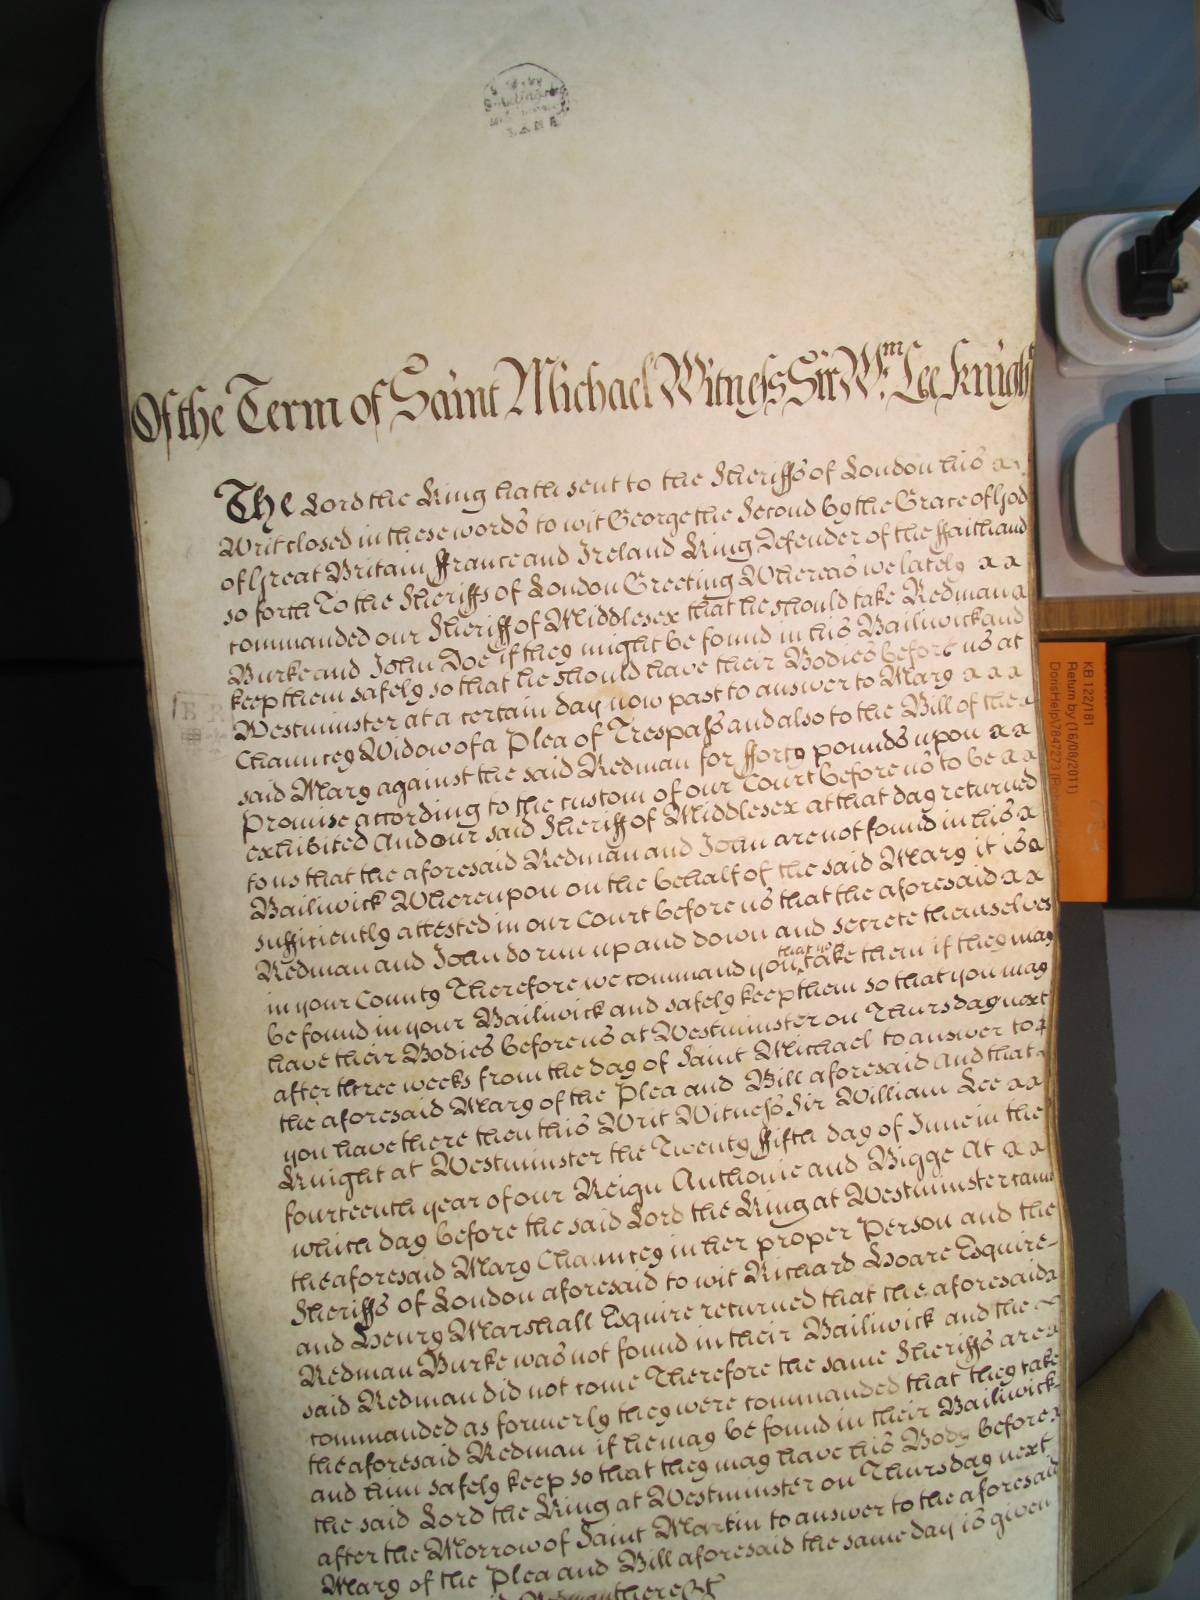 Of the Term of Saint Michael Witness Sir Wm. Lee Knight
The Lord the King hath sent to the Sheriffs of London his
Writ closed in these words to wit George the Second by the Grace of God
of Great Britain France and Ireland King Defender of the ffaith and
so forth To the Sheriffs of London Greeting Whereas we lately
commanded our Sheriff of Middlesex that he should take Redman
Burke and John Doe if they might be found in his Bailiwick and
keep them safely so that he should have their Bodies before us at
Westminster at a certain day now past to answer to Mary
Chauncey Widow of a Plea of Trespass and also to the Bill of the
said Mary against the said Redman for fforty pounds upon
Promise according to the custom of our Court before us to be
exhibited And our said Sheriff of Middlesex at that day returned
to us that the aforesaid Redman and John are not found in his
Bailiwick Whereupon on the behalf of the said Mary it is
sufficiently attested in our Court before us that the aforesaid
Redman and John do run up and down and secrete themselves
in your County Therefore we command you that you take them if they may
be found in your Bailiwick and safely keep them so that you may
have their Bodies before us at Westminster on Thursday next
after three weeks from the day of Saint Michael to answer to
the aforesaid Mary of the Plea and Bill aforesaid And that
you have there then this Writ Witness Sir William Lee
Knight at Westminster the Twenty ffifth day of June in the
fourteenth year of our Reign Anthonie and Bigge At
which day before the said Lord the King at Westminster came
the aforesaid Mary Chauncey in her proper Person and the
Sheriffs of London aforesaid to wit Richard Hoare Esquire
and Henry Marshall Esquire returned that the aforesaid
Redman Burke was not found in their Bailiwick and the
said Redman did not come Therefore the same Sheriffs are
commanded as formerly they were commanded that they take
the aforesaid Redman if he may be found in their Bailiwick
and him safely keep so that they may have his Body before
the said Lord the King at Westminster on Thursday next
after the Morrow of Saint Martin to answer to the aforesaid
Mary of the Plea and Bill aforesaid the same day is given
there &c
KB 122/181
Return by (16/08/2011)